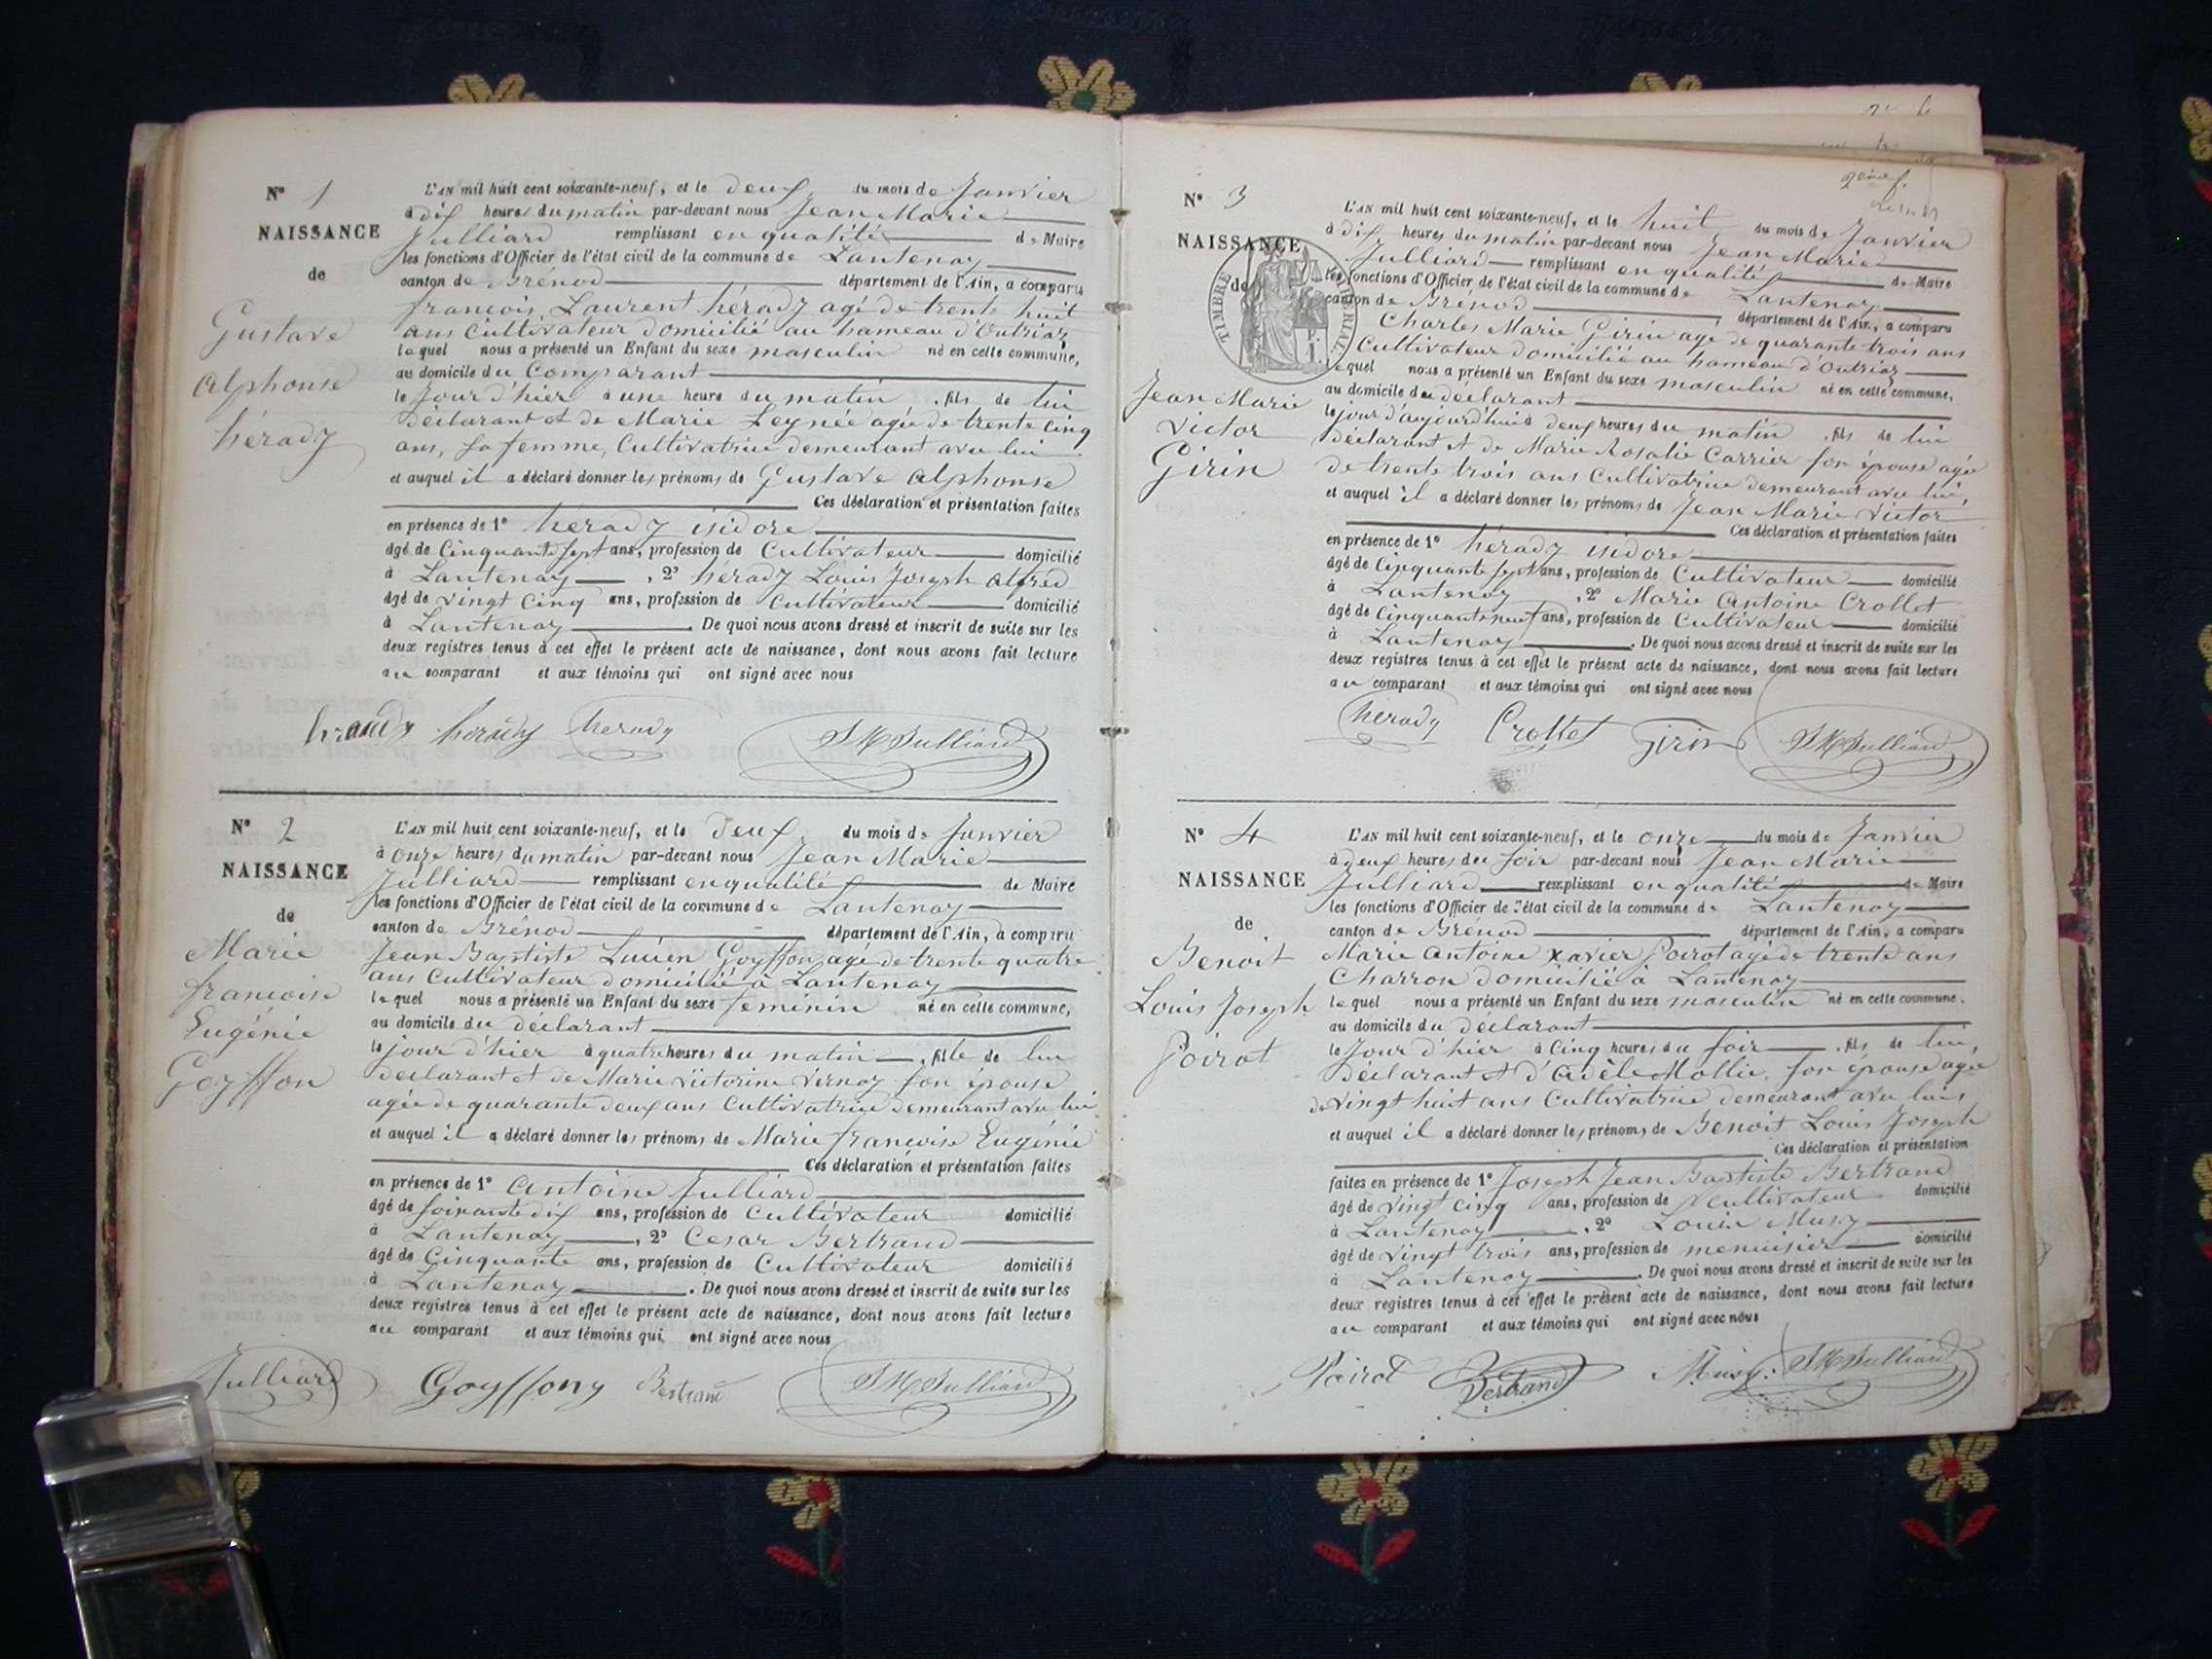 N° 1
NAISSANCE
de
Gustave
alphonse
hérady
L'AN mil huit cent soixante-neuf, et le deux du mois de Janvier
à dix heures du matin par-devant nous Jean Marie
Julliard remplissant en qualité de Maire
les fonctions d'Officier de l'état civil de la commune de Lantenay
canton de Brénod département de l'Ain, a comparu
françois Laurent hérady agé de trente huit
ans Cultivateur domicilié au hameau d'Outriaz
lequel nous a présenté un Enfant du sexe masculin né en cette commune,
au domicile du Comparant
le Jour d'hier à une heure du matin, fils de lui
déclarant et de Marie Leynée agée de trente cinq
ans, sa femme, Cultivatrice demeurant avec lui
et auquel il a déclaré donner les prénoms de Gustave alphonse
Ces déclaration et présentation faites
en présence de 1° hérady isidore
âgé de Cinquante sept ans, profession de Cultivateur domicilié
à Lantenay, 2° hérady Louis Joseph alfred
âgé de vingt Cinq ans, profession de Cultivateur domicilié
à Lantenay. De quoi nous avons dressé et inscrit de suite sur les
deux registres tenus à cet effet le présent acte de naissance, dont nous avons fait lecture
au comparant et aux témoins qui ont signé avec nous
hérady hérady herady JM Julliard
N° 2
NAISSANCE
de
Marie
françoise
Eugénie
Goyffon
L'AN mil huit cent soixante-neuf, et le deux du mois de Janvier
à onze heures du matin par-devant nous Jean Marie
Julliard remplissant en qualité de Maire
les fonctions d'Officier de l'état civil de la commune de Lantenay
canton de Brénod département de l'Ain, a comparu
Jean Baptiste Lucien Goyffon agé de trente quatre
ans Cultivateur domicilié à Lantenay
lequel nous a présenté un Enfant du sexe feminin né en cette commune,
au domicile du déclarant
le jour d'hier à quatre heures du matin, fille de lui
déclarant et de Marie Victorine Vernay son épouse
agée de quarante deux ans Cultivatrice demeurant avec lui
et auquel il a déclaré donner les prénoms de Marie françoise Eugénie
Ces déclaration et présentation faites
en présence de 1° antoine Julliard
âgé de soixante dix ans, profession de Cultivateur domicilié
à Lantenay, 2° Cesar Bertrand
âgé de Cinquante ans, profession de Cultivateur domicilié
à Lantenay. De quoi nous avons dressé et inscrit de suite sur les
deux registres tenus à cet effet le présent acte de naissance, dont nous avons fait lecture
au comparant et aux témoins qui ont signé avec nous
Julliard Goyffony Bertrand JM Julliard
2eme f.
N° 3
NAISSANCE
de
TIMBRE IMPÉRIAL
Jean Marie
Victor
Girin
L'AN mil huit cent soixante-neuf, et le huit du mois de Janvier
à dix heures du matin par-devant nous Jean Marie
Julliard remplissant en qualité de Maire
les fonctions d'Officier de l'état civil de la commune de Lantenay
canton de Brénod département de l'Ain, a comparu
Charles Marie Girin agé de quarante trois ans
Cultivateur domicilié au hameau d'Outriaz
lequel nous a présenté un Enfant du sexe masculin né en cette commune,
au domicile du déclarant
le jour d'aujourd'hui à deux heures du matin, fils de lui
déclarant et de Marie Rosalie Carrier son épouse agée
de trente trois ans Cultivatrice demeurant avec lui,
et auquel il a déclaré donner les prénoms de Jean Marie Victor
Ces déclaration et présentation faites
en présence de 1° hérady isidore
âgé de Cinquante sept ans, profession de Cultivateur domicilié
à Lantenay, 2° Marie Antoine Crollet
âgé de Cinquante neuf ans, profession de Cultivateur domicilié
à Lantenay. De quoi nous avons dressé et inscrit de suite sur les
deux registres tenus à cet effet le présent acte de naissance, dont nous avons fait lecture
au comparant et aux témoins qui ont signé avec nous
herady Crollet Girin JM Julliard
N° 4
NAISSANCE
de
Benoit
Louis Joseph
Poirot
L'AN mil huit cent soixante-neuf, et le onze du mois de Janvier
à deux heures du soir par-devant nous Jean Marie
Julliard remplissant en qualité de Maire
les fonctions d'Officier de l'état civil de la commune de Lantenay
canton de Brénod département de l'Ain, a comparu
Marie Antoine Xavier Poirot agé de trente ans
Charron domicilié à Lantenay
lequel nous a présenté un Enfant du sexe masculin né en cette commune,
au domicile du déclarant
le Jour d'hier à Cinq heures du soir, fils de lui,
déclarant et d'adèle Mollie, son épouse agée
de vingt huit ans Cultivatrice demeurant avec lui,
et auquel il a déclaré donner les prénoms de Benoit Louis Joseph
Ces déclaration et présentation
faites en présence de 1° Joseph Jean Baptiste Bertrand
âgé de vingt cinq ans, profession de Cultivateur domicilié
à Lantenay, 2° Louis Musy
âgé de vingt trois ans, profession de menuisier domicilié
à Lantenay. De quoi nous avons dressé et inscrit de suite sur les
deux registres tenus à cet effet le présent acte de naissance, dont nous avons fait lecture
au comparant et aux témoins qui ont signé avec nous
Poirot Bertrand Musy JM Julliard